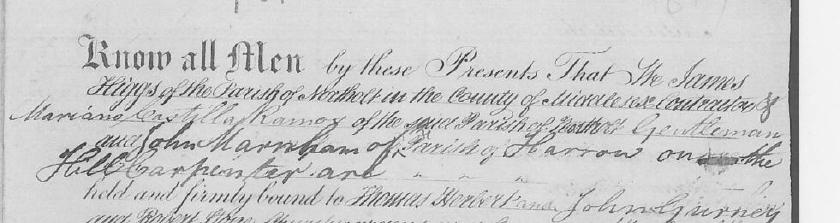 Know all Men by these Presents That We James
Higgs of the Parish of Northolt in the County of Middlesex Contractor &
Mariano Castilla Ramos of the said Parish of Northolt Gentleman
and John Marnham of Parish of Harrow on the
Hill Carpenter are " " "
held and firmly bound to Thomas Herbert and John Gurney
and Robert